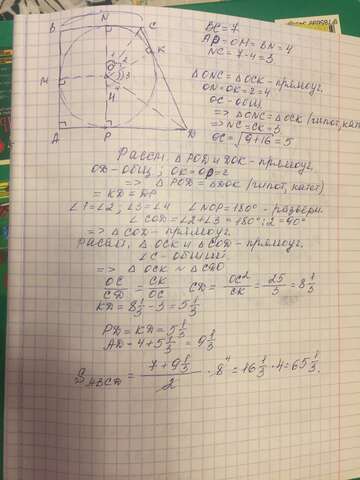 B N C
K
M O
A P D
1 2 3 4
4
BC = 7
AP = OM = BN = 4
NC = 7-4 = 3
△ONC = △OCK - прямоуг.
ON = OK = r = 4
OC - общ.
=> △ONC = △OCK (гипот, кат)
=> NC = CK = 3
OC = √9+16 = 5
Рассм. △POD и △DOK - прямоуг.
OD - общ; OK = OP = r
=> △POD = △DOK (гипот, катет)
=> KD = DP
∠1 = ∠2; ∠3 = ∠4 ∠NOP = 180° - разверн.
∠COD = ∠2+∠3 = 180°:2 = 90°
=> △COD - прямоуг.
Рассм. △OCK и △COD - прямоуг.
∠C - общий
=> △OCK ~ △COD
OC/CD = CK/OC CD = OC²/CK = 25/3 = 8 1/3
KD = 8 1/3 - 3 = 5 1/3
PD = KD = 5 1/3
AD = 4 + 5 1/3 = 9 1/3
S ABCD = (7 + 9 1/3)/2 · 8 4 = 16 1/3 · 4 = 65 1/3.